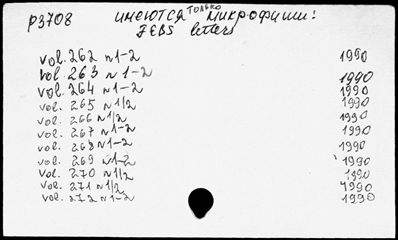 р3708 имеются только микрофиши:
FEBS letters
vol. 262 n1-2 1990
vol. 263 n1-2 1990
vol. 264 n1-2 1990
vol. 265 n1/2 1990
vol. 266 n1/2 1990
vol. 267 n1-2 1990
vol. 268 n1-2 1990
vol. 269 n1-2 1990
vol. 270 n1/2 1990
vol. 271 n1/2 1990
vol. 272 n1-2 1990